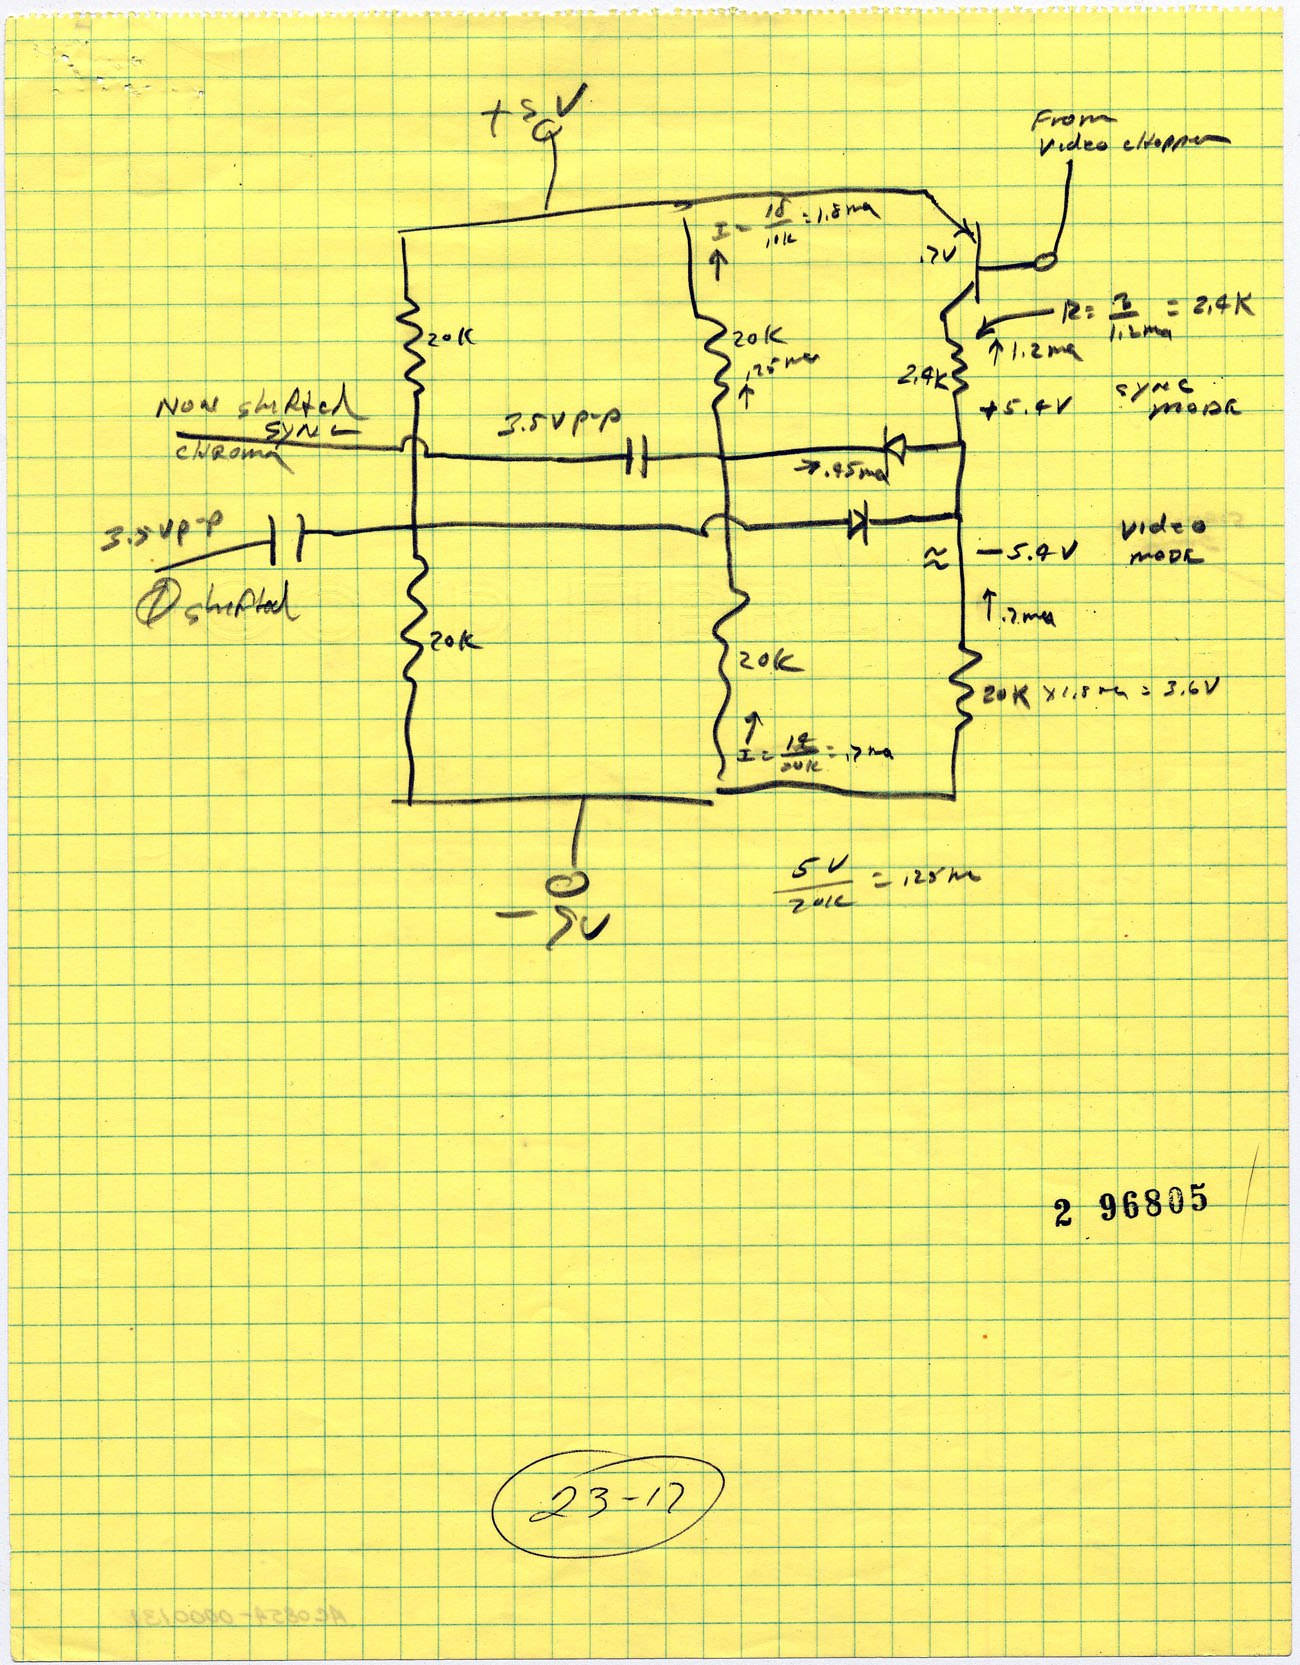 +9V
From
Video chopper
I = 18/10K = 1.8ma
.7V
R = 3/1.2ma = 2.4K
20K
20K
.25ma
1.2ma
2.4K
sync
mode
+5.4V
Non shifted
sync
chroma
3.5V p-p
.45ma
3.5V p-p
Video
mode
≈ -5.4V
shifted
.7ma
20K
20K
20K x 1.8ma = 3.6V
I = 14/20K = .7ma
5V/20K = .25ma
-9V
2 96805
23-17
AG0854-0000131